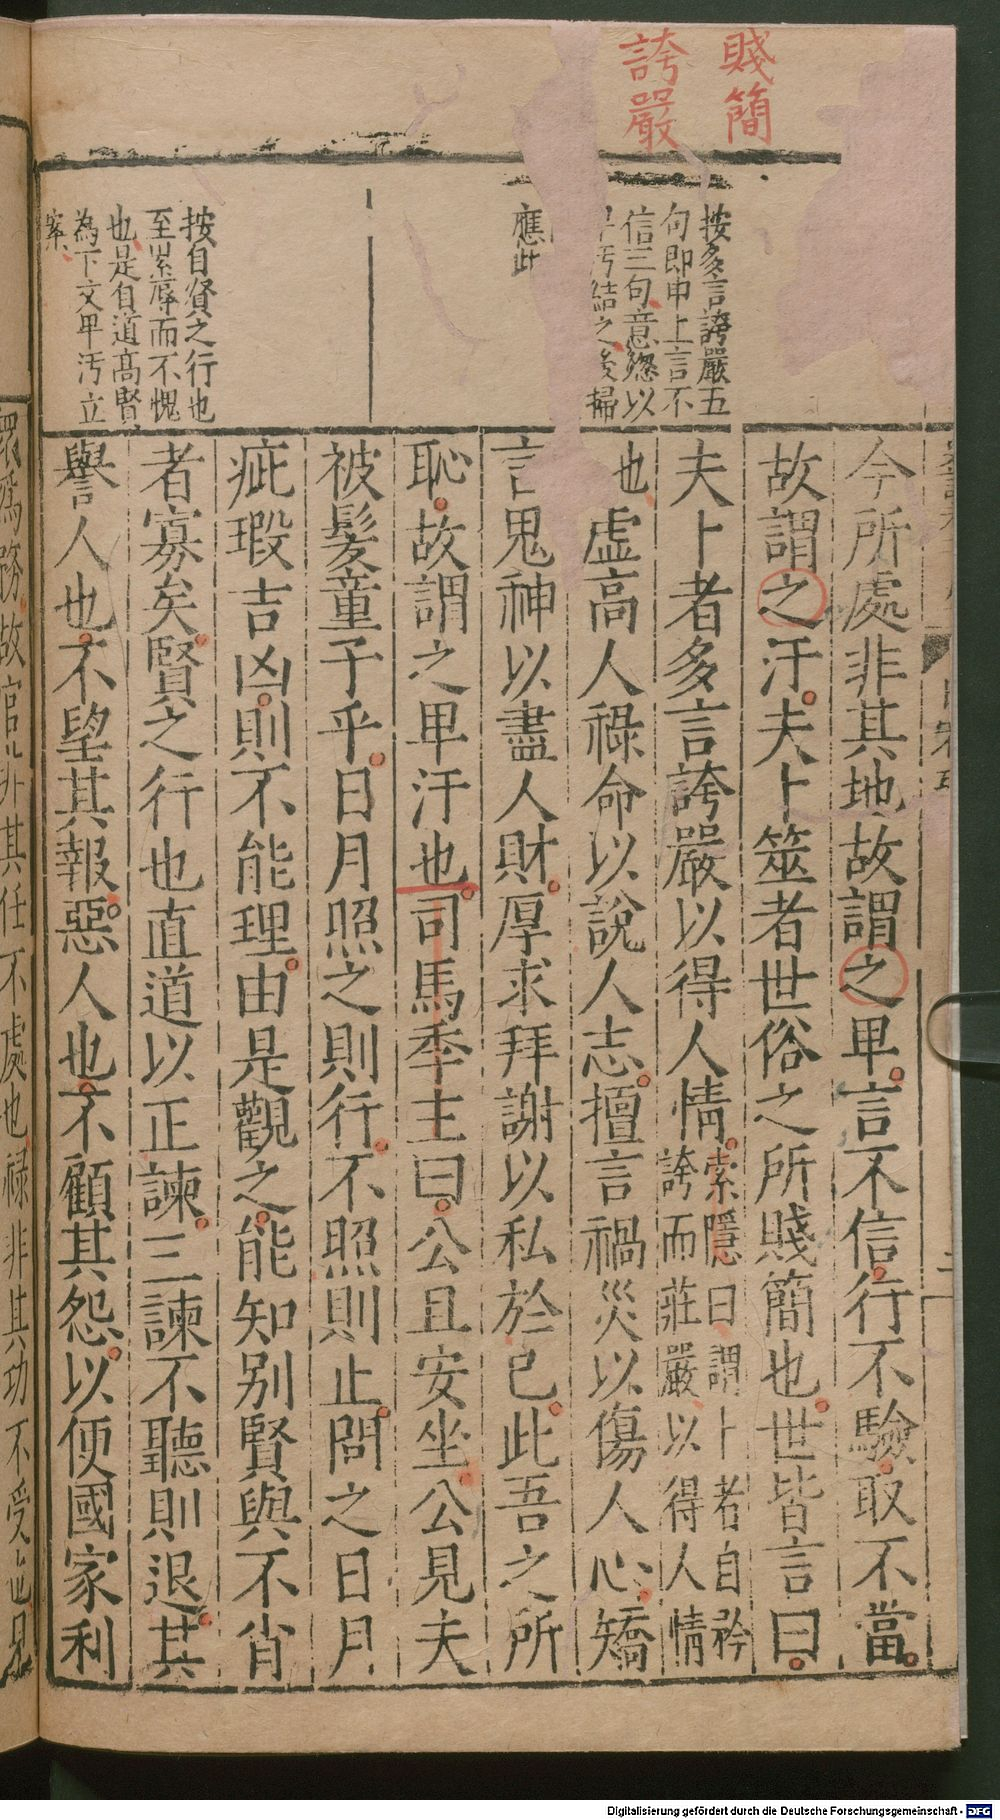 賤簡
誇嚴
按多言誇嚴五
句即申上言不
信三句意總以
汚結之後掃
應此
按自賢之行也
至累辱而不愧
也是自道高賢
為下文卑汚立
案
今所處非其地故謂之卑言不信行不驗取不當
故謂之汙夫卜筮者世俗之所賤簡也世皆言曰
夫卜者多言誇嚴以得人情索隱曰謂卜者自矜
誇而莊嚴以得人情
也虛高人祿命以說人志擅言禍災以傷人心矯
言鬼神以盡人財厚求拜謝以私於己此吾之所
恥故謂之卑汙也司馬季主曰公且安坐公見夫
被髮童子乎日月照之則行不照則止問之日月
疵瑕吉凶則不能理由是觀之能知別賢與不肖
者寡矣賢之行也直道以正諫三諫不聽則退其
譽人也不望其報惡人也不顧其怨以便國家利
眾為務故官非其任不處也祿非其功不受也見
Digitalisierung gefördert durch die Deutsche Forschungsgemeinschaft - DFG